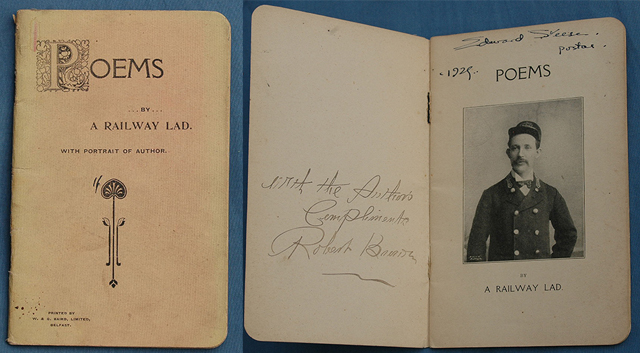 POEMS
...BY...
A RAILWAY LAD.
WITH PORTRAIT OF AUTHOR.
PRINTED BY
W. & G. BAIRD, LIMITED,
BELFAST.
With the Author's
Compliments
Robert
Edward
1929.
POEMS
BY
A RAILWAY LAD.